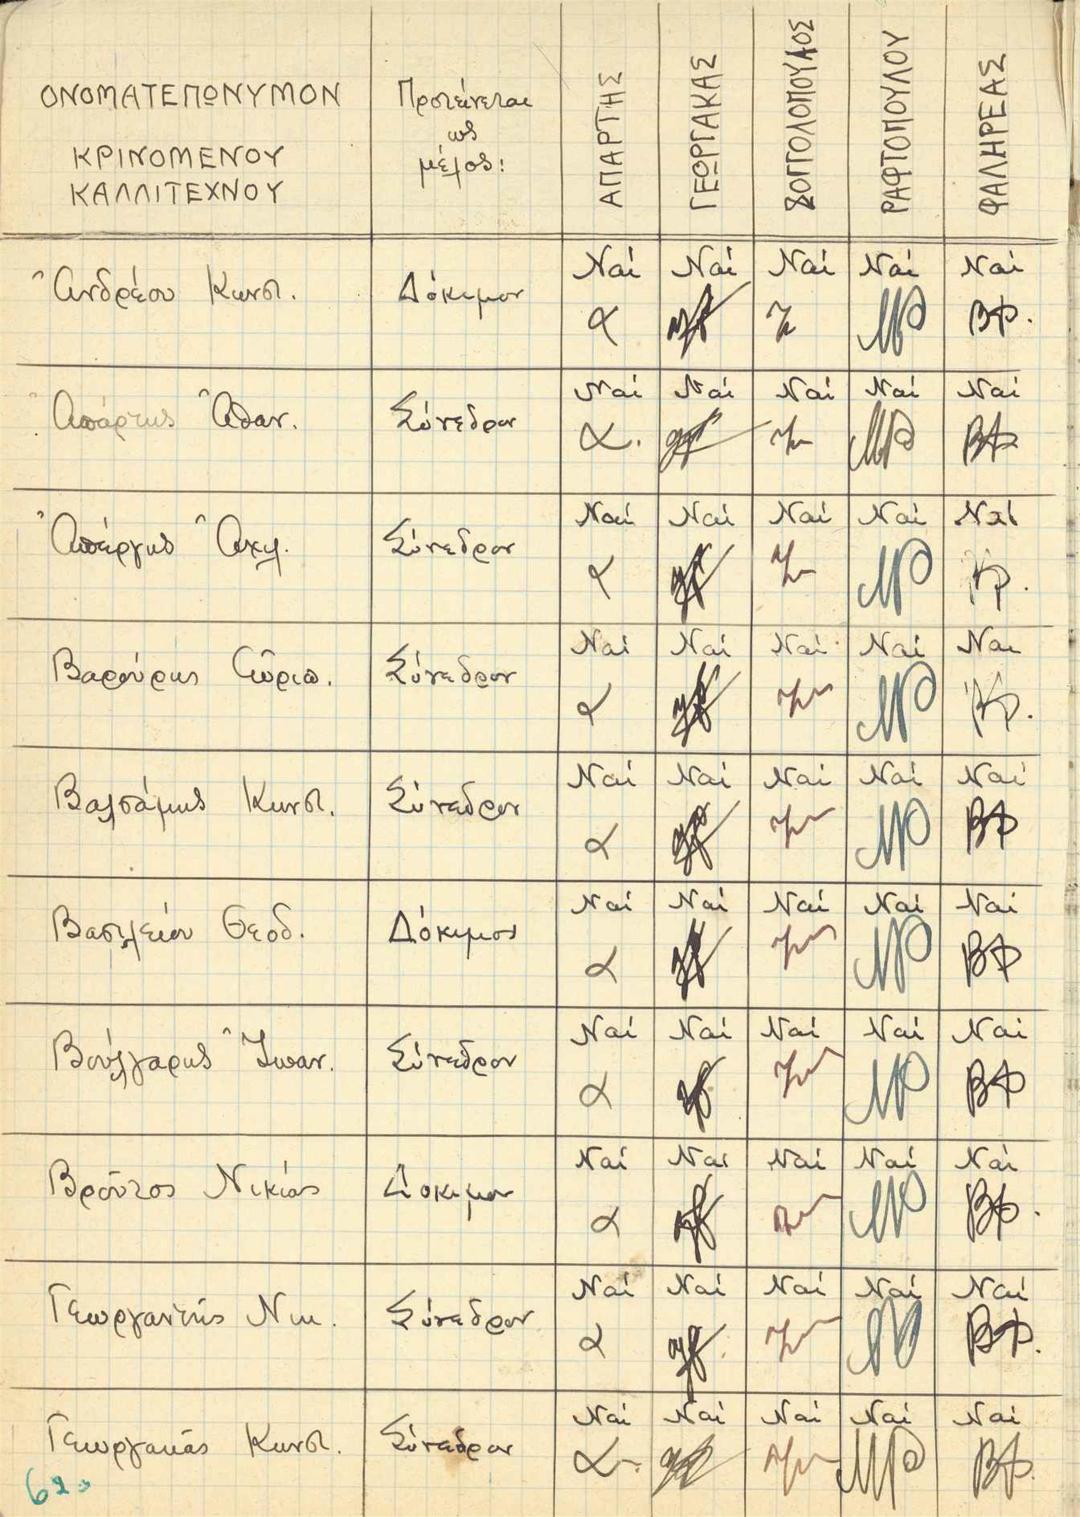 ΟΝΟΜΑΤΕΠΩΝΥΜΟΝ
ΚΡΙΝΟΜΕΝΟΥ
ΚΑΛΛΙΤΕΧΝΟΥ
Προτείνεται
ὡς
μέλος:
ΑΠΑΡΤΗΣ
ΓΕΩΡΓΑΚΑΣ
ΖΟΓΓΟΛΟΠΟΥΛΟΣ
ΡΑΦΤΟΠΟΥΛΟΥ
ΦΑΛΗΡΕΑΣ
Ἀνδρέου Κωνστ. Δόκιμον Ναί Ναί Ναί Ναί Ναί
α ΒΦ.
Ἀπάρτης Ἀθαν. Σύνεδρον Ναί Ναί Ναί Ναί Ναί
α. ΒΦ
Ἀπέργης Ἀχιλ. Σύνεδρον Ναί Ναί Ναί Ναί Ναί
α
Βαρούρης Εὐριπ. Σύνεδρον Ναί Ναί Ναί Ναί Ναι
α
Βαλσάμης Κωνστ. Σύνεδρον Ναί Ναί Ναί Ναί Ναί
α ΒΦ
Βασιλείου Θεοδ. Δόκιμος Ναί Ναί Ναί Ναί Ναί
α ΒΦ
Βούλγαρης Ἰωαν. Σύνεδρον Ναί Ναί Ναί Ναί Ναί
α ΒΦ
Βροῦτος Νικίας Δόκιμον Ναί Ναι Ναί Ναί Ναί
α ΒΦ.
Γεωργαντής Νικ. Σύνεδρον Ναί Ναί Ναί Ναί Ναί
α ΒΦ.
Γεωργακᾶς Κωνστ. Σύνεδρον Ναί Ναί Ναί Ναί Ναί
α ΒΦ.